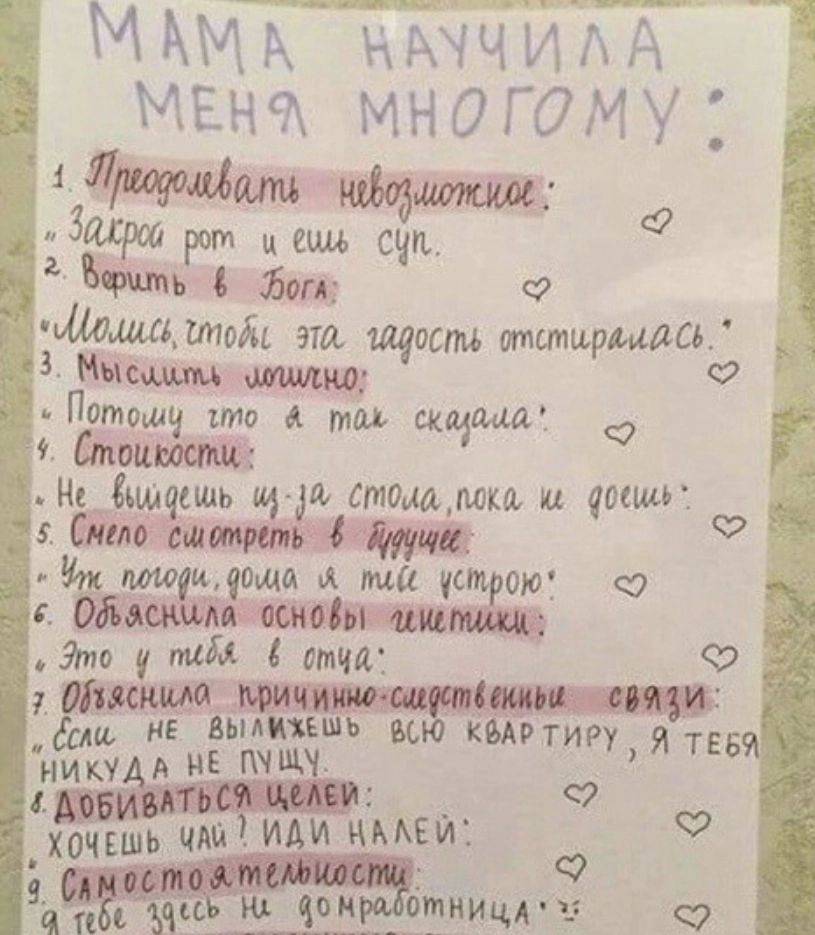 МАМА НАУЧИЛА
МЕНЯ МНОГОМУ:
1. Преодолевать невозможное:
„Закрой рот и ешь суп.
2. Верить в Бога:
"Молись, чтобы эта гадость отстиралась."
3. Мыслить логично:
„Потому что я так сказала"
4. Стойкости:
„Не выйдешь из-за стола, пока не доешь"
5. Смело смотреть в будущее:
„Уж погоди, дома я тебе устрою"
6. Объяснила основы генетики:
„Это у тебя в отца"
7. Объяснила причинно-следственные связи:
„Если НЕ ВЫЛИЖЕШЬ ВСЮ КВАРТИРУ, Я ТЕБЯ
НИКУДА НЕ ПУЩУ.
8. ДОБИВАТЬСЯ ЦЕЛЕЙ:
„ХОЧЕШЬ ЧАЙ? ИДИ НАЛЕЙ"
9. Самостоятельности:
Я тебе здесь не домработница"